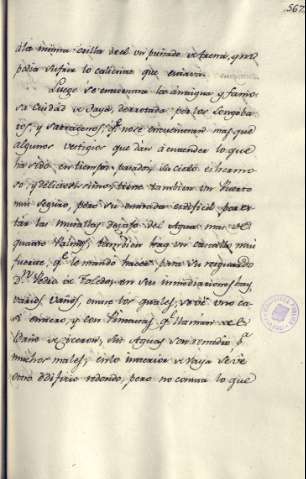 567.
a la misma orilla de el un puñado de arena, y no se
podia sufrir lo caliente que estava.
Luego se encuentra la antigua y famo
sa Ciudad de Vaya, derrotada por los Longobar
dos, y sarracenos, qe. no se encuentran mas que
algunos vestigios que dan à entender lo que
ha sido en tiempos pasados, su cielo es hermo
so, y delicioso sitio, tiene tambien un Puerto
mui seguro, pero su entrada es dificil por es
tar las murallas devajo del Agua mas de
quatro Palmos, tambien hay un Castillo mui
fuerte, qe. lo mandò hacer para su resguardo
Dn. Pedro de Toledo, en sus inmediaciones hay
varios Vaños, entre los quales, se vè uno ca
si entero, y con Pinturas, qe. llaman de el
Baño de Ciceron, sus Aguas son remedio pa.
muchos males; en lo interior de Vaya se ve
otro edificio redondo, pero no consta lo que